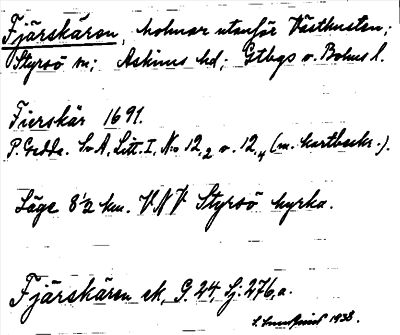 Fjärskären, holmar utanför Västkusten;
Styrsö sn; Askims hd; Gtbgs o. Bohus l.
Fierskär 1691.
P. Gedda. Sv A, Litt. I, No 12,2 o. 12,4 (m. kartbeskr.).
Läge 8½ km. VNV Styrsö kyrka.
Fjärskären ek, G. 24, Sj. 276,a.
1938.